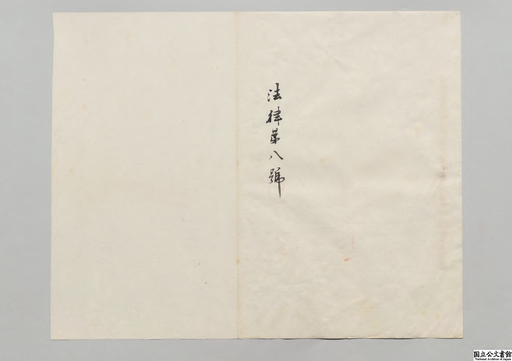 法律第八號
国立公文書館
National Archives of Japan